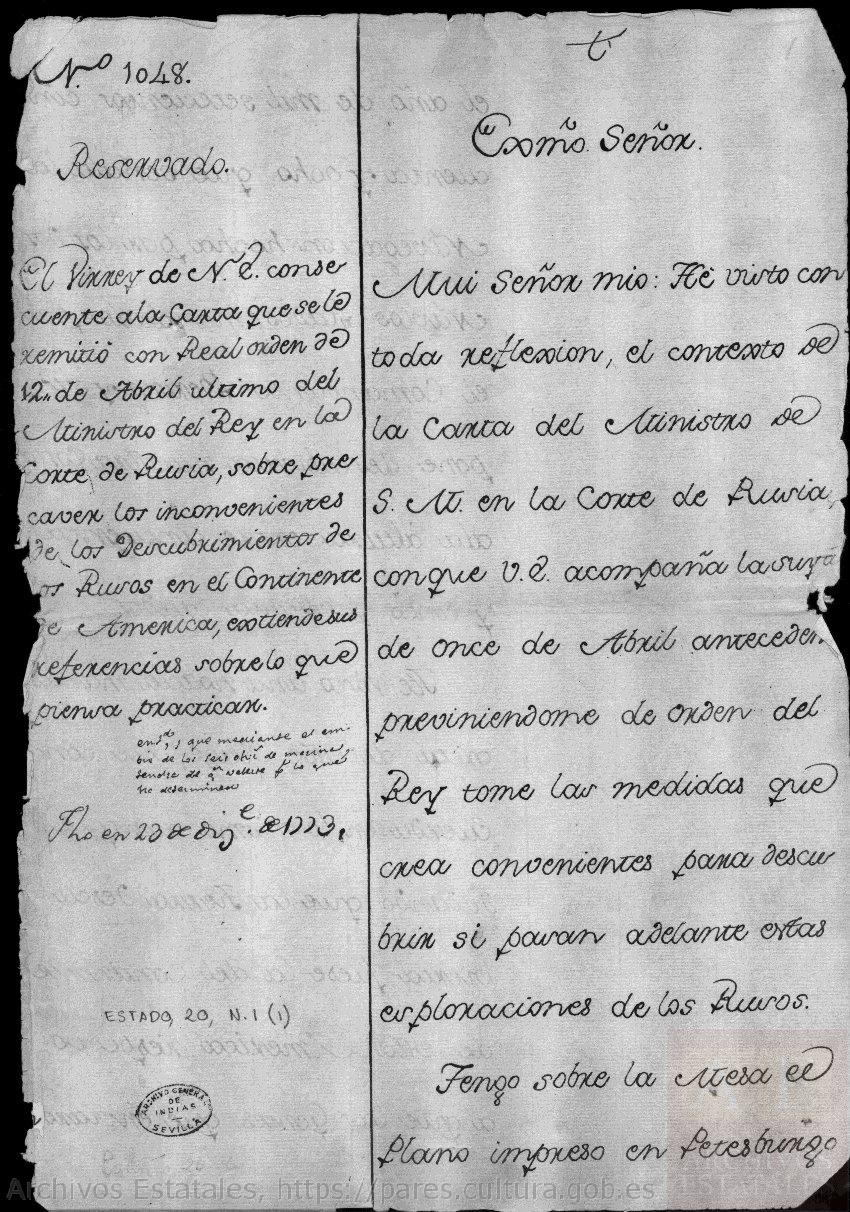 N.º 1048.
Reservado.
El Virrey de N. E. conse
cuente ala Carta que se le
remitiò con Real orden de
12,, de Abril ultimo del
Ministro del Rey en la
Corte de Rusia, sobre pre
caver los inconvenientes
de los Descubrimientos de
los Rusos en el Continente
de America, extiende sus
referencias sobre lo que
piensa practicar.
y que mediante el em-
bio de los seis ofi.s de marina
no determinan
Fho en 23 de diz.e de 1773.
ESTADO, 20, N.1 (1)
ARCHIVO GENERAL
DE
INDIAS
SEVILLA
t
Exmõ. Señor.
Mui Señor mio: Hé visto con
toda reflexion, el contexto de
la Carta del Ministro de
S. M. en la Corte de Rusia,
conque V.E. acompaña la suya
de once de Abril anteceden.
previniendome de orden del
Rey tome las medidas que
crea convenientes para descu
brir si pasan adelante estas
exploraciones de los Rusos.
Tengo sobre la Mesa el
Plano impreso en Petesburgo
Archivos Estatales, https://pares.cultura.gob.es